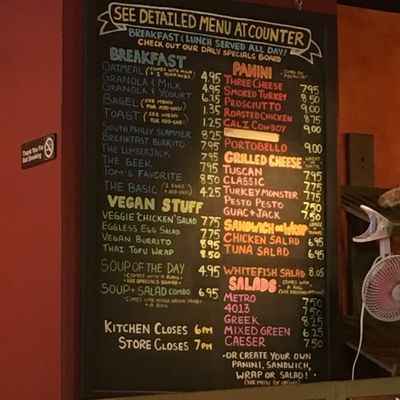 SEE DETAILED MENU AT COUNTER
BREAKFAST & LUNCH SERVED ALL DAY!
CHECK OUT OUR DAILY SPECIALS BOARD
BREAKFAST
OATMEAL (COMES W/ MILK & 2 TOPPINGS) 4.95
GRANOLA & MILK 4.95
GRANOLA & YOGURT 6.25
BAGEL (SEE MENU FOR ADD-ONS!) 1.35
TOAST (SEE MENU FOR ADD-ONS!) 1.25
SOUTH PHILLY SLUMMER 8.25
BREAKFAST BURRITO 7.95
THE LUMBERJACK 7.95
THE GEEK 7.95
TOM'S FAVORITE 8.50
THE BASIC (2 EGGS & ADD-ONS) 4.25
VEGAN STUFF
VEGGIE "CHICKEN" SALAD 7.75
EGGLESS EGG SALAD 7.75
VEGAN BURRITO 8.95
THAI TOFU WRAP 8.50
SOUP OF THE DAY 4.95
-COMES WITH A ROLL!
-SEE SPECIALS BOARD-
SOUP & SALAD COMBO 6.95
-COMES WITH MIXED GREEN SALAD
& A ROLL
KITCHEN CLOSES 6PM
STORE CLOSES 7PM
PANINI
THREE CHEESE 7.95
SMOKED TURKEY 8.50
PROSCIUTTO 9.00
ROASTED CHICKEN 8.75
CALI COWBOY 9.00
PORTOBELLO 9.00
GRILLED CHEESE WHEAT OR WHITE
TUSCAN 7.75
CLASSIC
TURKEY MONSTER 7.75
PESTO PESTO 7.50
GUAC & JACK 7.50
SANDWICH OR WRAP
CHICKEN SALAD 6.95
TUNA SALAD 6.95
WHITEFISH SALAD 8.05
SALADS COMES WITH A ROLL
METRO 7.50
4013 7.50
GREEK 8.25
MIXED GREEN 6.25
CAESER 7.50
-OR CREATE YOUR OWN
PANINI, SANDWICH,
WRAP OR SALAD!
(SEE MENU FOR OPTIONS)
Thank You For
Not Smoking